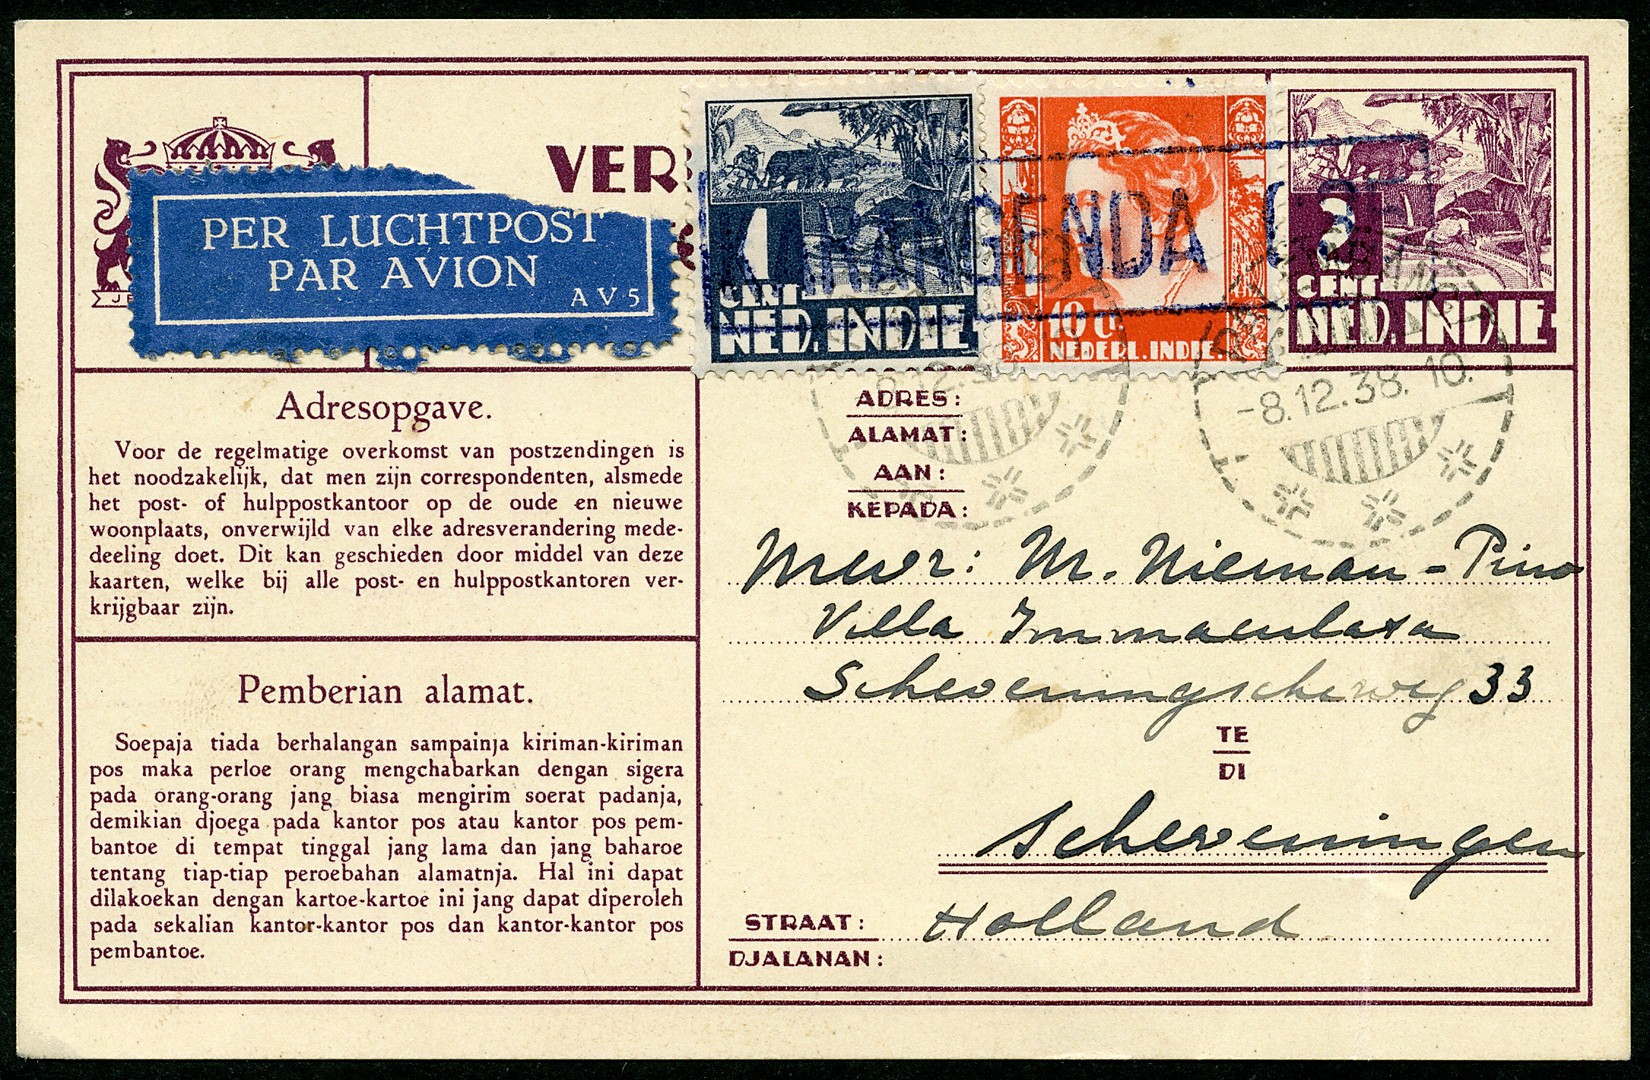 VER
PER LUCHTPOST
PAR AVION
AV5
1
CENT
NED. INDIE
10 ct.
NEDERL. INDIE.
2
CENT
NED. INDIE
-8.12.38. 10.
Adresopgave.
Voor de regelmatige overkomst van postzendingen is
het noodzakelijk, dat men zijn correspondenten, alsmede
het post- of hulppostkantoor op de oude en nieuwe
woonplaats, onverwijld van elke adresverandering mede-
deeling doet. Dit kan geschieden door middel van deze
kaarten, welke bij alle post- en hulppostkantoren ver-
krijgbaar zijn.
Pemberian alamat.
Soepaja tiada berhalangan sampainja kiriman-kiriman
pos maka perloe orang mengchabarkan dengan sigera
pada orang-orang jang biasa mengirim soerat padanja,
demikian djoega pada kantor pos atau kantor pos pem-
bantoe di tempat tinggal jang lama dan jang baharoe
tentang tiap-tiap peroebahan alamatnja. Hal ini dapat
dilakoekan dengan kartoe-kartoe ini jang dapat diperoleh
pada sekalian kantor-kantor pos dan kantor-kantor pos
pembantoe.
ADRES:
ALAMAT:
AAN:
KEPADA:
Mevr: M. Nieman-Pino
Villa Immaculata
Scheveningscheweg 33
TE
DI
Scheveningen
STRAAT: Holland
DJALANAN: